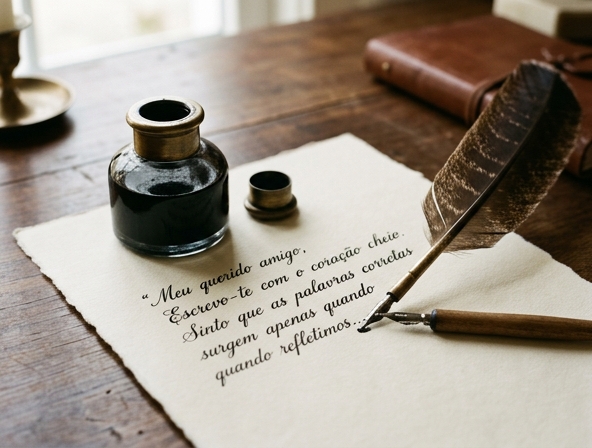 “Meu querido amigo,
Escrevo-te com o coração cheio.
Sinto que as palavras corretas
surgem apenas quando
quando refletimos.